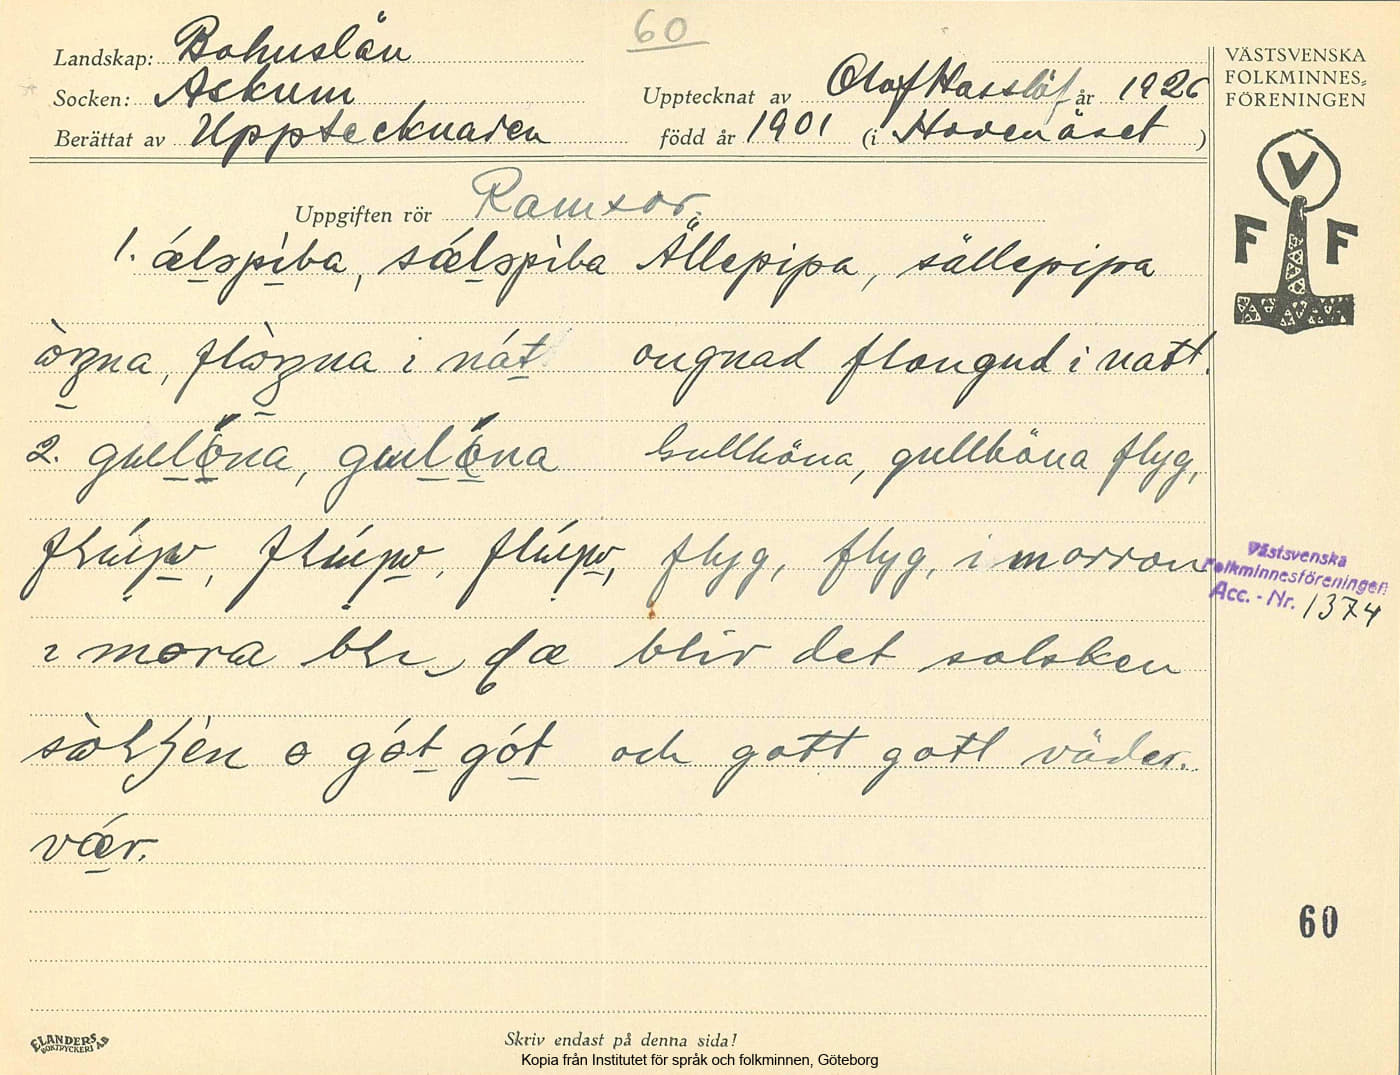 60
Landskap: Bohuslän
Socken: Askum
Berättat av Upptecknaren
Upptecknat av Olof Hasslöf år 1926
född år 1901 (i Hovenäset)
VÄSTSVENSKA
FOLKMINNES=
FÖRENINGEN
V
F F
Uppgiften rör Ramsor.
1. ǽlspìba, sǽlspìba Ällepipa, sällepipa
i nát ougnad flougnd i natt.
2. Gullhöna, gullhöna flyg,
flyg, flyg, i morron
i mora blir det solsken
o gót gót och gott gott väder.
vǽr.
Västsvenska
Folkminnesföreningen
Acc. - Nr. 1374
60
ELANDERS
BOKTRYCKERI AB
Skriv endast på denna sida!
Kopia från Institutet för språk och folkminnen, Göteborg